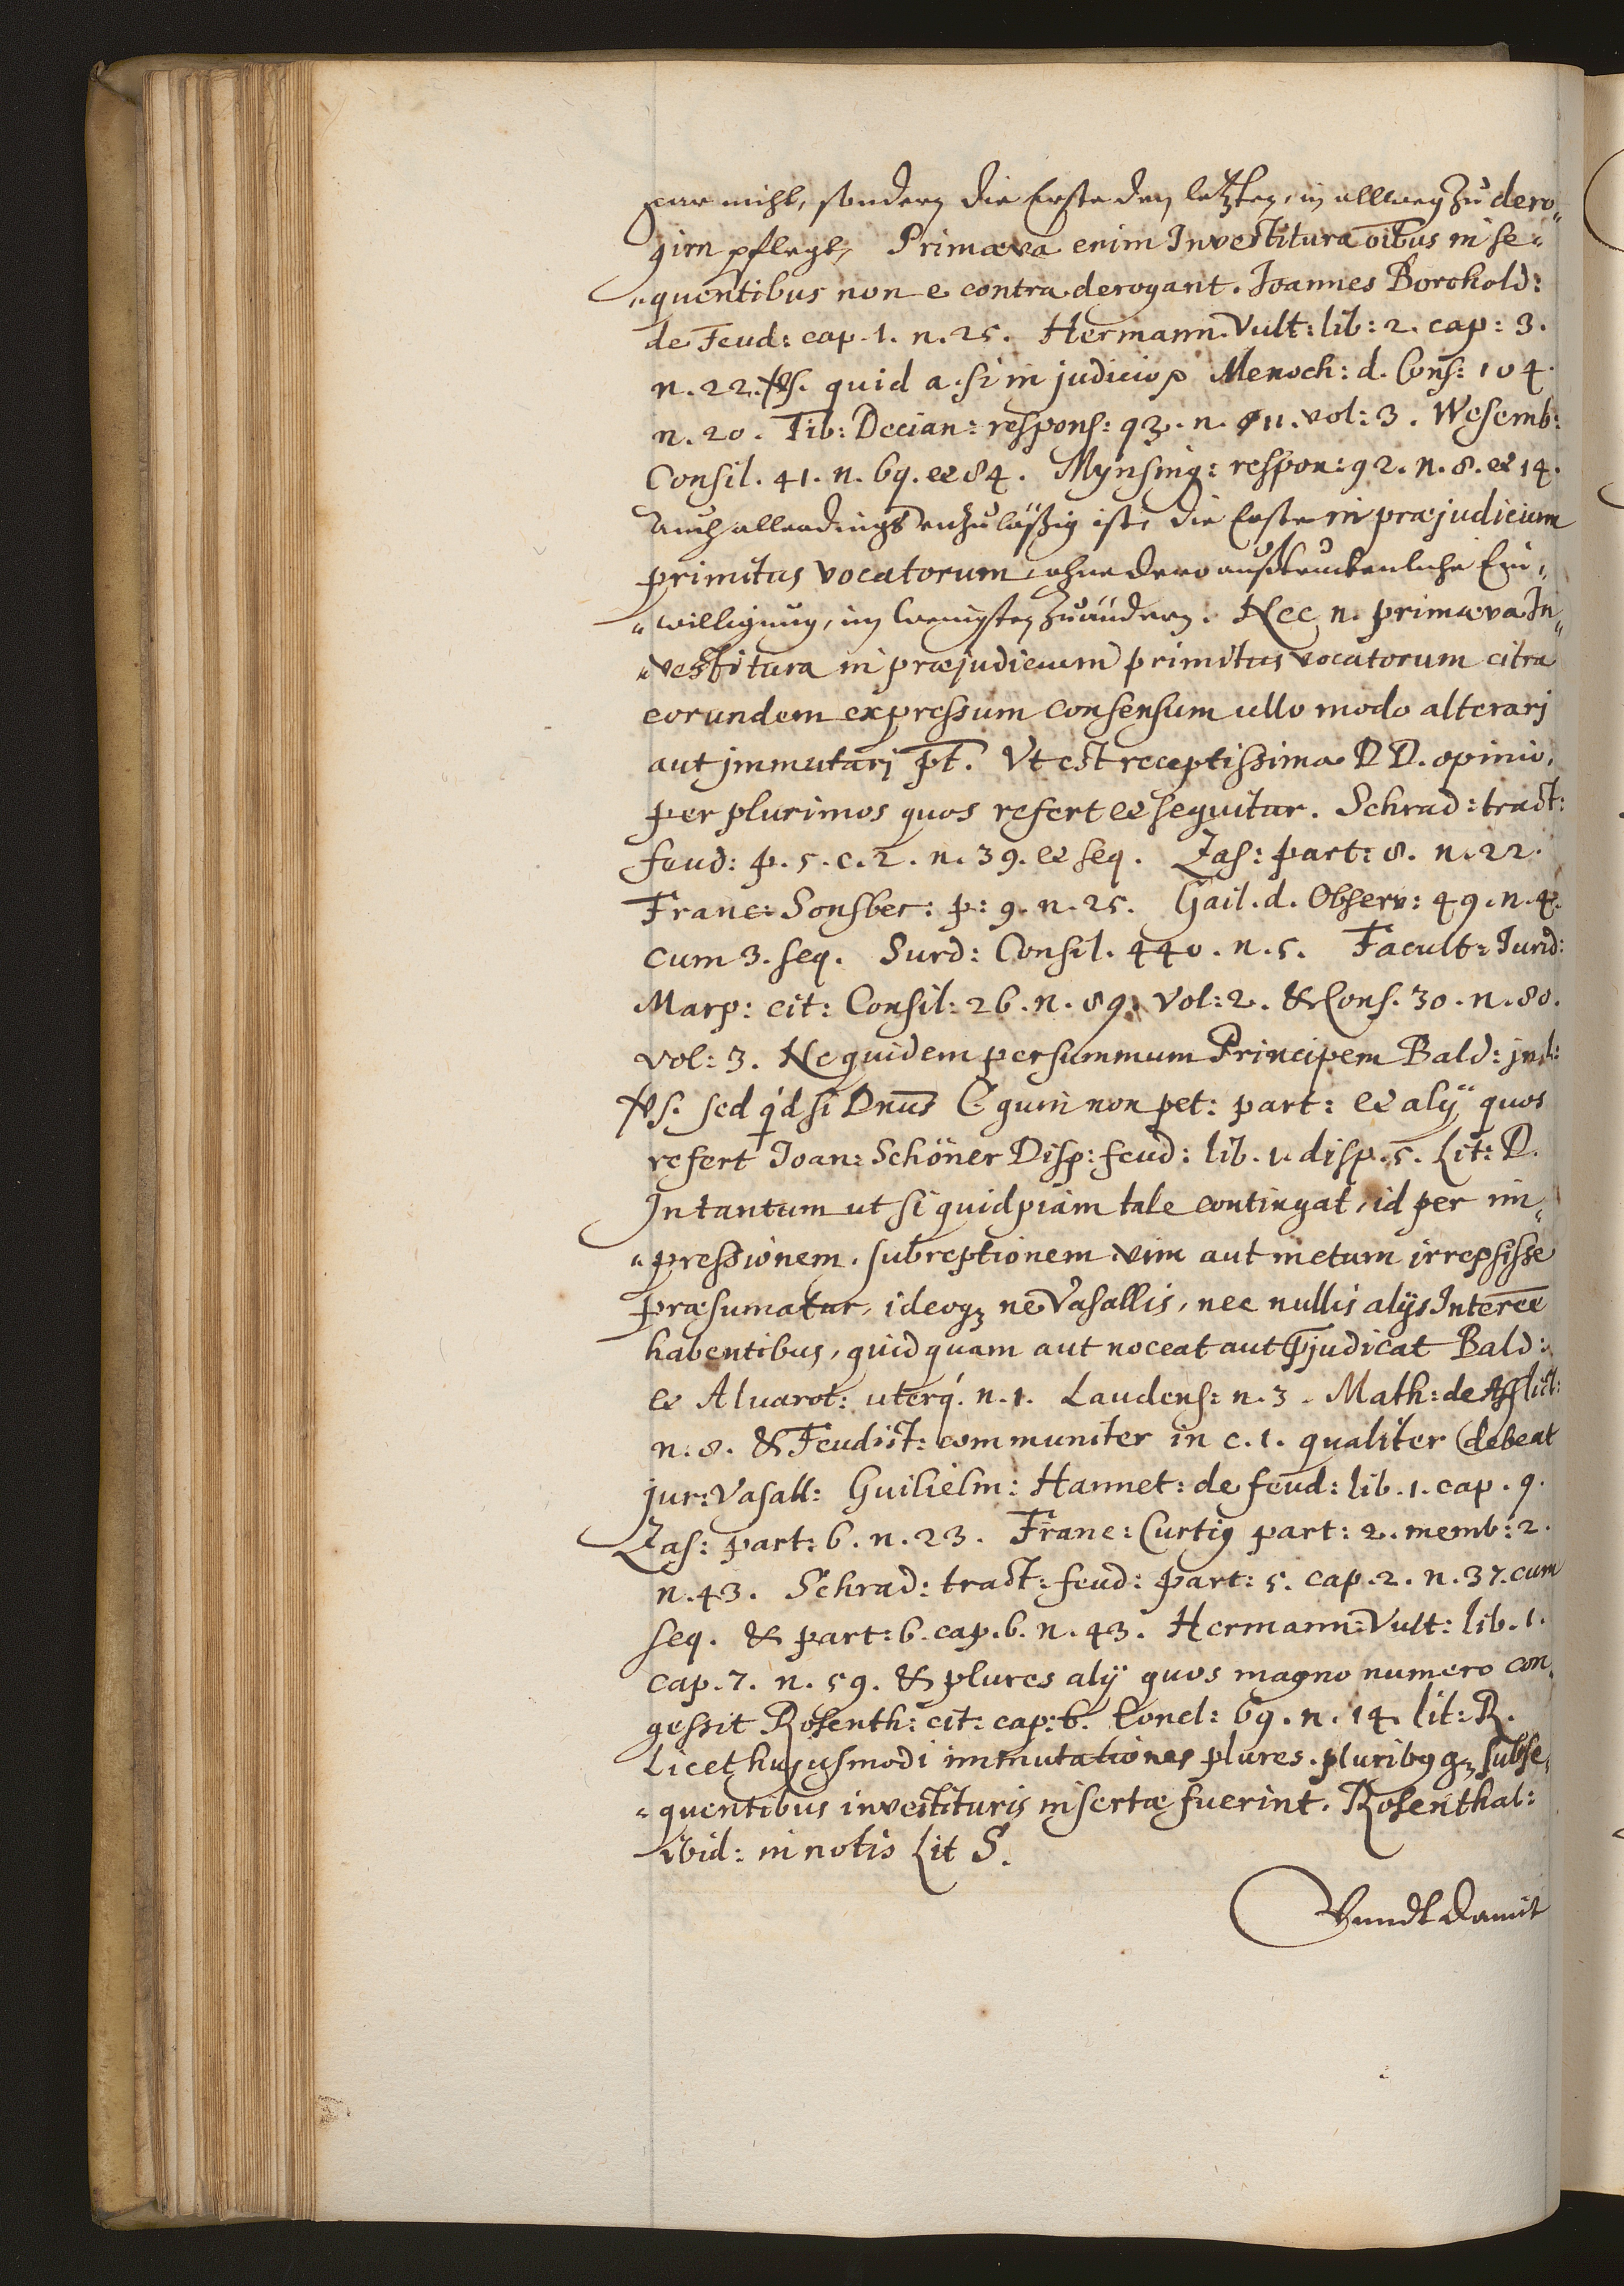 gar nicht, sondern die Erste den letzten, in allweg zu dero„
girn pflegt, Primæva enim Investitura oībus in se„
„quentibus non e contra derogant. Joannes Borchold:
de Feud: cap. 1. n. 25. Hermann. Vult: lib: 2. cap: 3.
n. 22. vs. quid a. si in judicio Menoch: d. Cons: 104.
n. 20. Tib: Decian: respons: 93. n. 11. vol: 3. Wesemb:
Consil. 41. n. 69. et 84. Mynsing: respon: 92. n. 8. et 14.
Auch allerdings unzuläßig ist, die Erste in præjudicium
primitus vocatorum, ohne dero außtruckenliche Ein„
„willigung, im wenigsten zuändern. Nec n. primæva In„
„vestitura in præjudicium primitus vocatorum citra
eorundem expressum consensum ullo modo alterarj
aut jmmutarj pt. Vt est receptissima DD. opinio,
per plurimos quos refert et sequitur. Schrad: tract:
feud: p. 5. c. 2. n. 39. et seq. Zas: part: 8. n. 22.
Franc: Sonsbec: p: 9. n. 25. Gail. d. Observ: 49. n. 4.
cum 3. seq. Surd: Consil. 440. n. 5. Facult: Jurid:
Marp: cit: Consil: 26. n. 89. Vol: 2. & Cons. 30. n. 80.
vol: 3. Ne quidem per summum Principem Bald: in d:
vs. sed qd si Dnus C. quin non pet: part: et alÿ quos
refert Joan: Schöner Disp: feud: lib. 1. disp. 5. Lit: D.
In tantum ut si quidpiam tale contingat, id per im„
„pressionem. subreptionem vim aut metum irrepsisse
præsumatur, ideoqz ne Vasallis, nec nullis alÿs Interee
habentibus, quidquam aut noceat aut pjudicat Bald:
et Alvarot: uterq. n. 1. Laudens: n. 3. Math: de Afflict:
n. 8. & Feudist: communiter in c. 1. qualiter debeat
jur: Vasall: Guilielm: Hannet: de feud: lib. 1. cap. 9.
Zas: part: 6. n. 23. Franc: Curtiq part: 2. memb: 2.
n. 43. Schrad: tract: feud: part: 5. cap. 2. n. 37. cum
seq. & part: 6. cap. 6. n. 43. Hermann: Vult: lib. 1.
cap. 7. n. 59. & plures alÿ quos magno numero con„
gessit Rosenth: cit: cap: 6. Concl: 69. n. 14. lit: R.
Licet hujusmodi immutationes plures. pluribq qz subse„
„quentibus investituris insertæ fuerint. Rosenthal:
ibid: in notis Lit S.
Vnndt damit